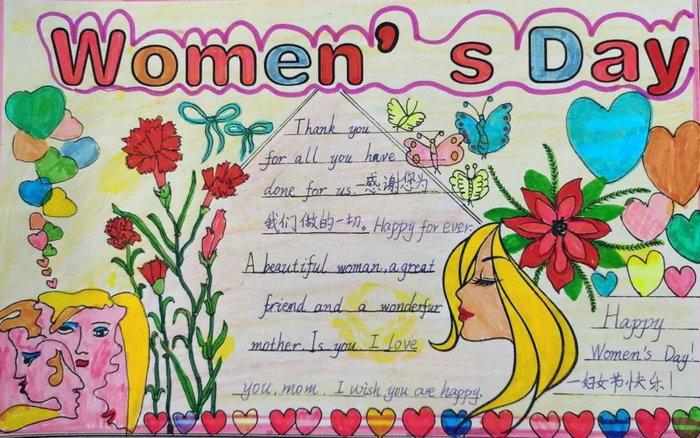 Women's Day
Thank you
for all you have
done for us.—感谢您为
我们做的一切。Happy for ever.
A beautiful woman, a great
friend and a wonderfur
mother. Is you. I love
you, mom. I wish you are happy.
Happy
Women's Day!
—妇女节快乐!